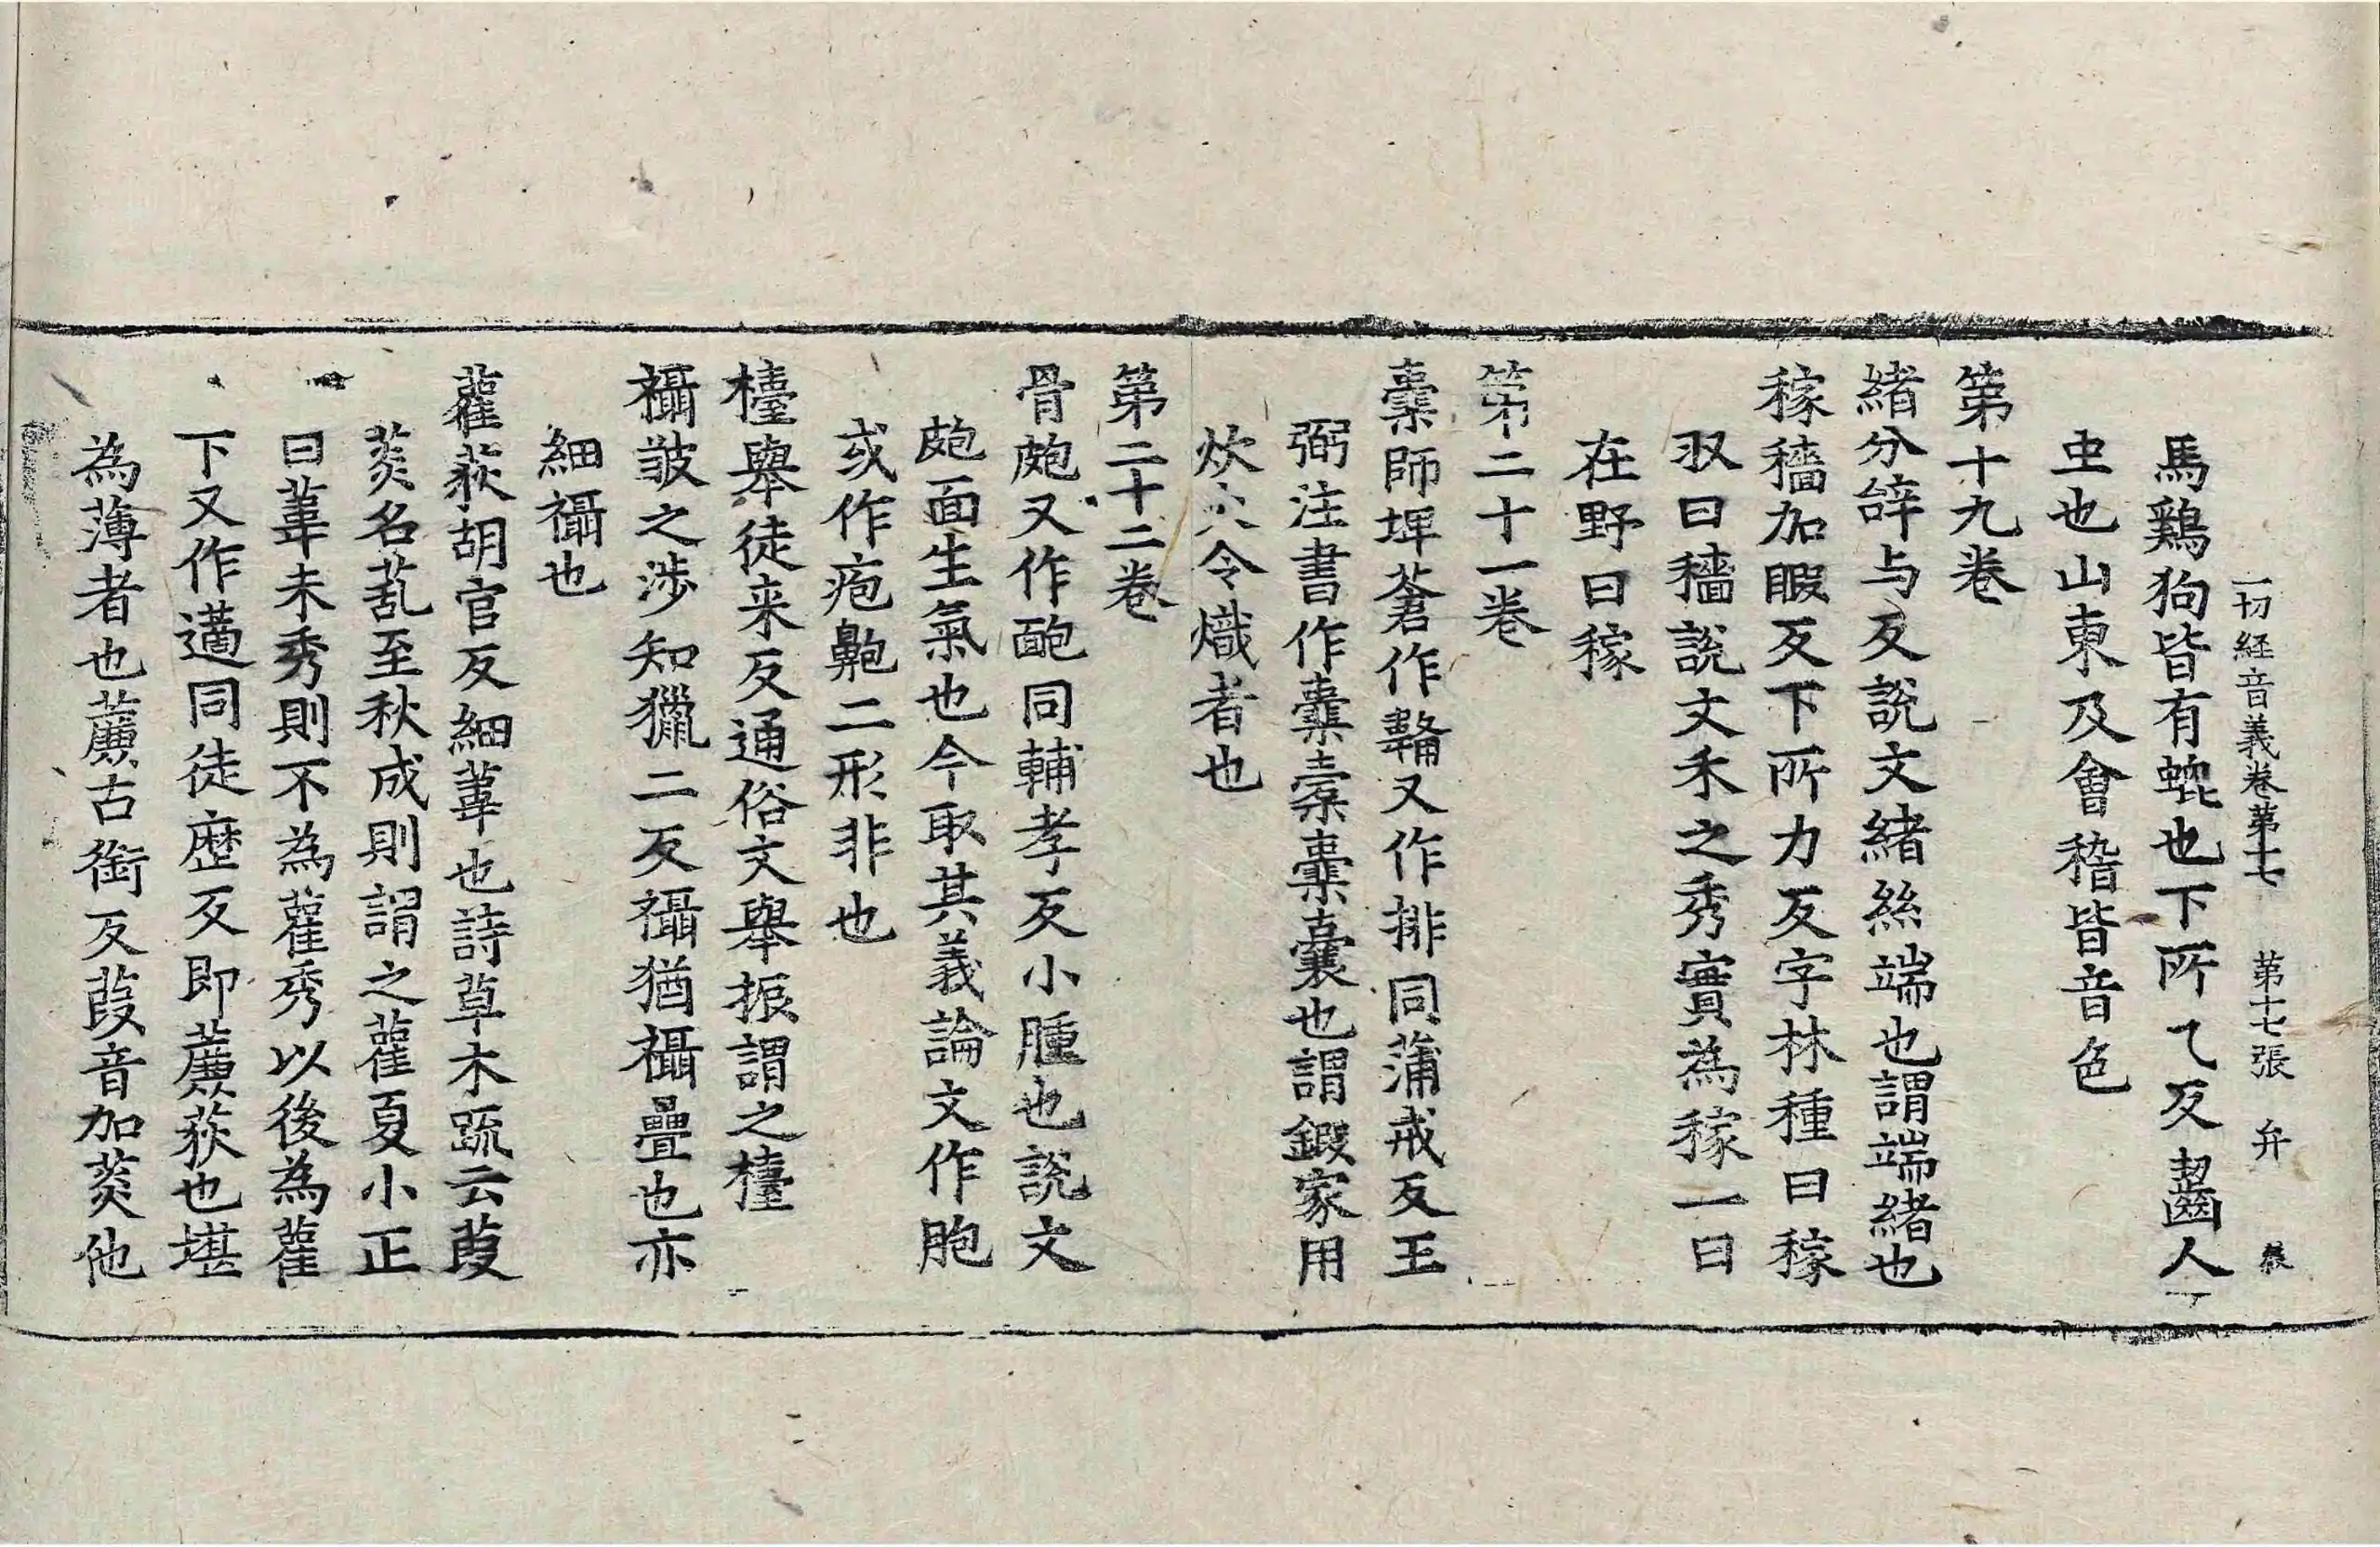 一切経音義卷第十七　第十七張　弁
馬鷄狗皆有螕也下所乀反齧人
虫也山東及會稽皆音色
第十九卷
緒分辝与反說文緒絲端也謂端緒也
稼穡加暇反下所力反字林種曰稼
収曰穡說文禾之秀實為稼一曰
在野曰稼
第二十一卷
橐師埤蒼作韛又作排同蒲戒反王
弼注書作橐橐橐囊也謂鍜家用
炊火令熾者也
第二十二卷
骨皰又作靤同輔孝反小腫也說文
皰面生氣也今取其義論文作胞
或作疱鼿二形非也
檯舉徒来反通俗文舉振謂之檯
襵皺之涉知獵二反襵猶襵疊也亦
細襵也
雚荻胡官反細葦也詩草木疏云葭
菼名䖂至秋成則謂之雚夏小正
曰葦未秀則不為雚秀以後為雚
下又作藡同徒歷反即薕荻也堪
為薄者也薕古銜反葭音加菼他